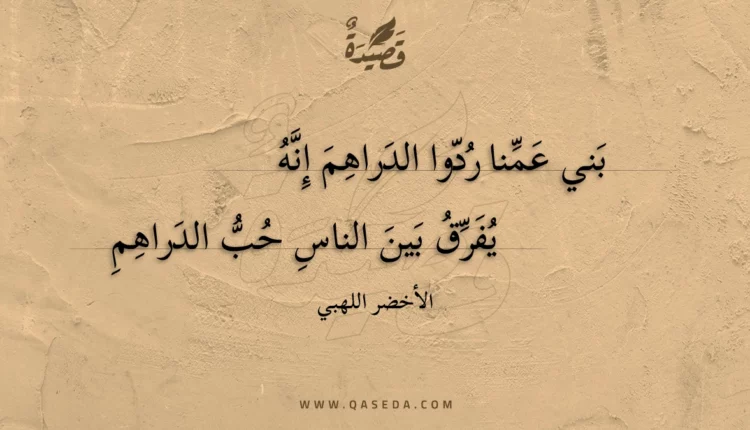 قَصِيدَةٌ
بَني عَمِّنا رُدّوا الدَراهِمَ إِنَّهُ
يُفَرِّقُ بَينَ الناسِ حُبُّ الدَراهِمِ
الأخضر اللهبي
WWW.QASEDA.COM